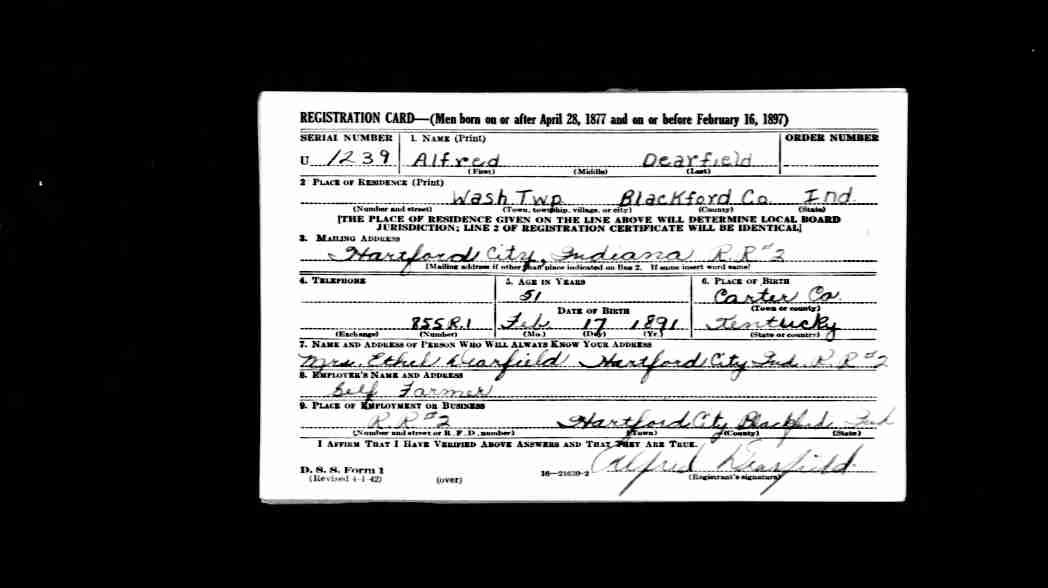 REGISTRATION CARD—(Men born on or after April 28, 1877 and on or before February 16, 1897)
SERIAL NUMBER 1. NAME (Print) ORDER NUMBER
U 1239 Alfred Dearfield
(First) (Middle) (Last)
2 PLACE OF RESIDENCE (Print)
Wash Twp Blackford Co. Ind.
(Number and street) (Town, township, village, or city) (County) (State)
[THE PLACE OF RESIDENCE GIVEN ON THE LINE ABOVE WILL DETERMINE LOCAL BOARD
JURISDICTION; LINE 2 OF REGISTRATION CERTIFICATE WILL BE IDENTICAL]
3. MAILING ADDRESS
Hartford City, Indiana R.R #2
[Mailing address if other than place indicated on line 2. If same insert word same]
4. TELEPHONE 5. AGE IN YEARS 6. PLACE OF BIRTH
51 Carter Co.
DATE OF BIRTH (Town or county)
855R.1 Feb. 17 1891 Kentucky
(Exchange) (Number) (Mo.) (Day) (Yr.) (State or country)
7. NAME AND ADDRESS OF PERSON WHO WILL ALWAYS KNOW YOUR ADDRESS
Mrs. Ethel Dearfield Hartford City Ind. R R #2
8. EMPLOYER'S NAME AND ADDRESS
Self Farmer
9. PLACE OF EMPLOYMENT OR BUSINESS
R.R #2 Hartford City Blackford Ind
(Number and street or R. F. D. number) (Town) (County) (State)
I AFFIRM THAT I HAVE VERIFIED ABOVE ANSWERS AND THAT THEY ARE TRUE.
Alfred Dearfield
D. S. S. Form 1 16—21630-2 (Registrant's signature)
(Revised 4-1-42) (over)